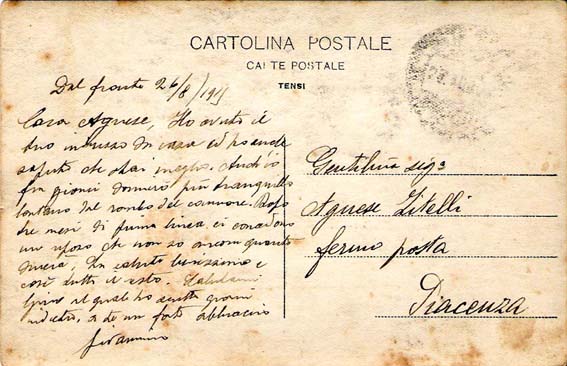 CARTOLINA POSTALE
CARTE POSTALE
TENSI
Dal fronte 26/8/1915
Cara Agnese, Ho avuto il
tuo in casa ed ho anche
saputo che stai meglio. Anch'io
fra giorni dormirò più tranquillo
lontano dal rombo del cannone. Dopo
tre mesi di prima linea ci concedono
un riposo che non so ancora quanto
durerà. In salute benissimo e
così tutti il resto. Salutami
il quale ho scritto giorni
indietro, a te un forte abbraccio
Gentil.ma sig.a
Agnese Zitelli
fermo posta
Piacenza